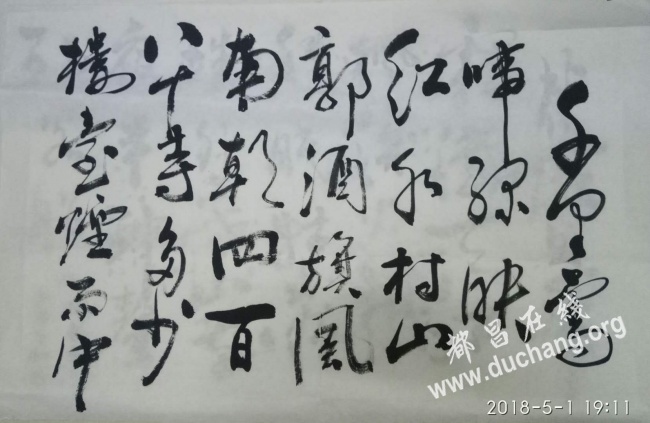 千里鶯
啼綠映
紅水村山
郭酒旗風
南朝四百
八十寺多少
樓臺煙雨中
都昌在线
www.duchang.org
2018-5-1 19:11